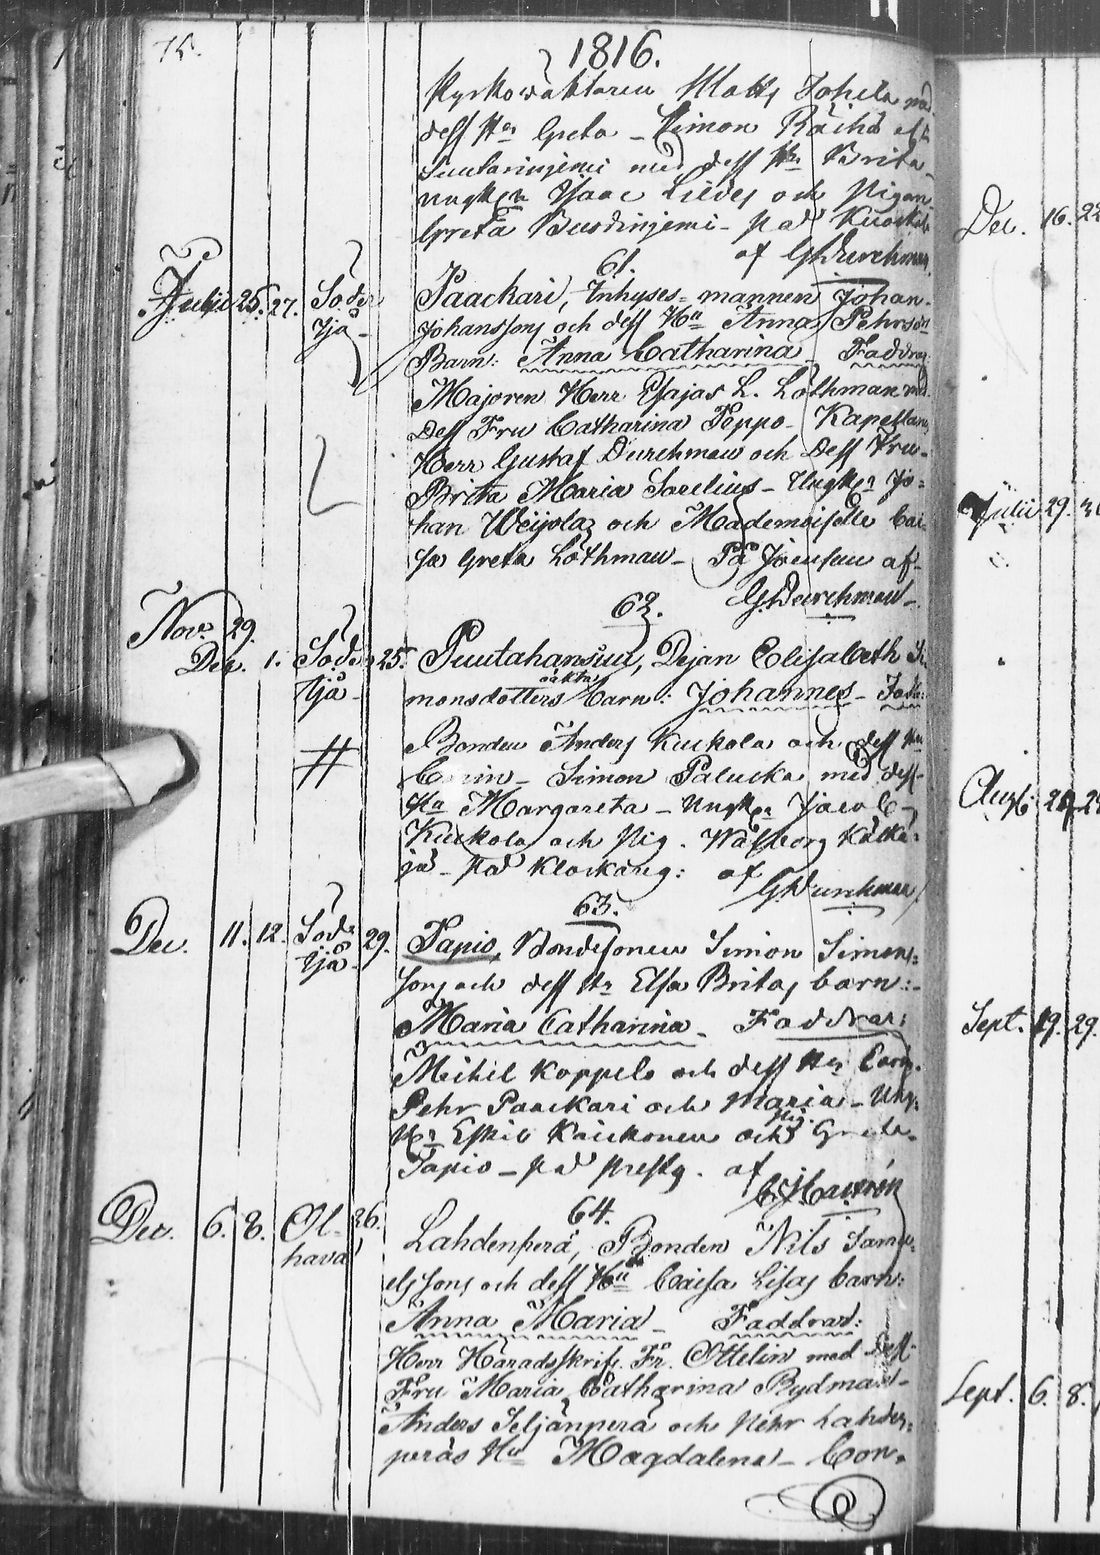 75.
1816.
Kyrkowäktaren Matts Tohila med
dess Hu Greta - Simon Räihä
med dess Hu Brita
ungk:n Isaac Lides och Pigan
Greta - på Kuoski
af G. Durchman
61.
Julii 25. 27. Söder
tjå -
Paackari, Inhyses-mannen Johan
Johanssons och dess Hu Anna Pehrs
Barn: Anna Catharina - Faddrar
Majoren Herr Esajas L. Lothman med
Dess Fru Catharina Peppo - Kapellan
Herr Gustaf Durchman och Dess Fru
Brita Maria Sarelius - Ungk:n Jo=
han Weijola och Mademoiselle Cai
sa Greta Lothman - På Jouusuu af
G. Durchman -
62.
Nov. 29.
Dec. 1. Söder 25.
tjå -
Puutahansuu, Pijan Elisabeth Si
monsdotters oäkta barn: Johannes - Fadd:
#
Bonden Anders Kuckola och dess Hu
Carin - Simon Palucka med dess
Hu Margareta - Ungk:n Jacob
Kuckola och Pig. Walborg Kälkä=
jä - på Klockarg: af
G. Durchman
63.
Dec. 11. 12. Söder 29.
tjå -
Tapio, Bondesonen Simon Simons=
sons och dess Hu Elsa Britas barn:
Maria Catharina - Faddrar:
Mihel Koppelo och dess Hu Carin.
Pehr Paackari och Maria - Ung=
k:n Eskil Kaickonen och Pig. Greta
Tapio - på Prestg. af
C. J. Castrén
64.
Dec. 6. 8. Ol- 26.
hava
Lahdenperä, Bonden Nils Samu=
elssons och dess Hu Caisa Lisas barn:
Anna Maria - Faddrar:
Herr Häradsskrif. Fr. Ottelin med Dess
Fru Maria Catharina Rydman -
Anders Seljänperä och Pehr Lahden=
peräs Hu Magdalena - Con=
Dec. 16. 22
Julii 29. 30
Aug. 27 28
Sept. 19. 29.
Sept. 6. 8.